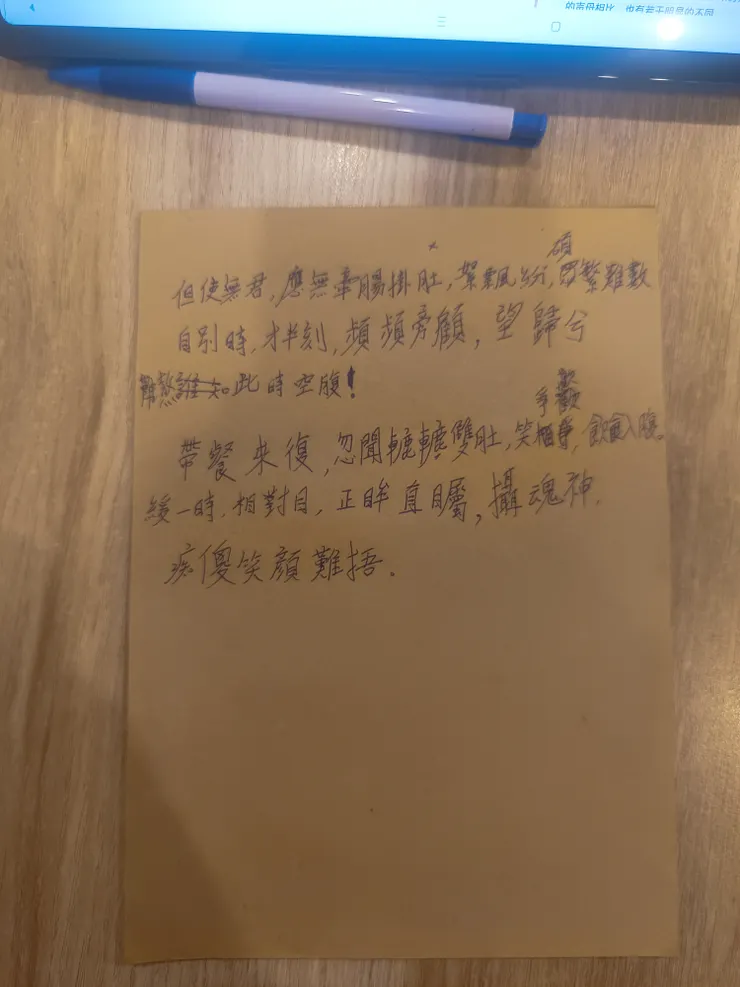 的声母相比，也有若干明显的不同
但使無君，應無牽腸掛肚，絮飄紛，碩繁難數
自别時，才半刻，頻頻旁顧，望歸兮
此時空腹！
帶餐来復，忽聞轆轆雙肚，笑爭歡，飲食入腸。
緩一時，相對目，正眸直矚，攝魂神.
痴傻笑顏難捂.